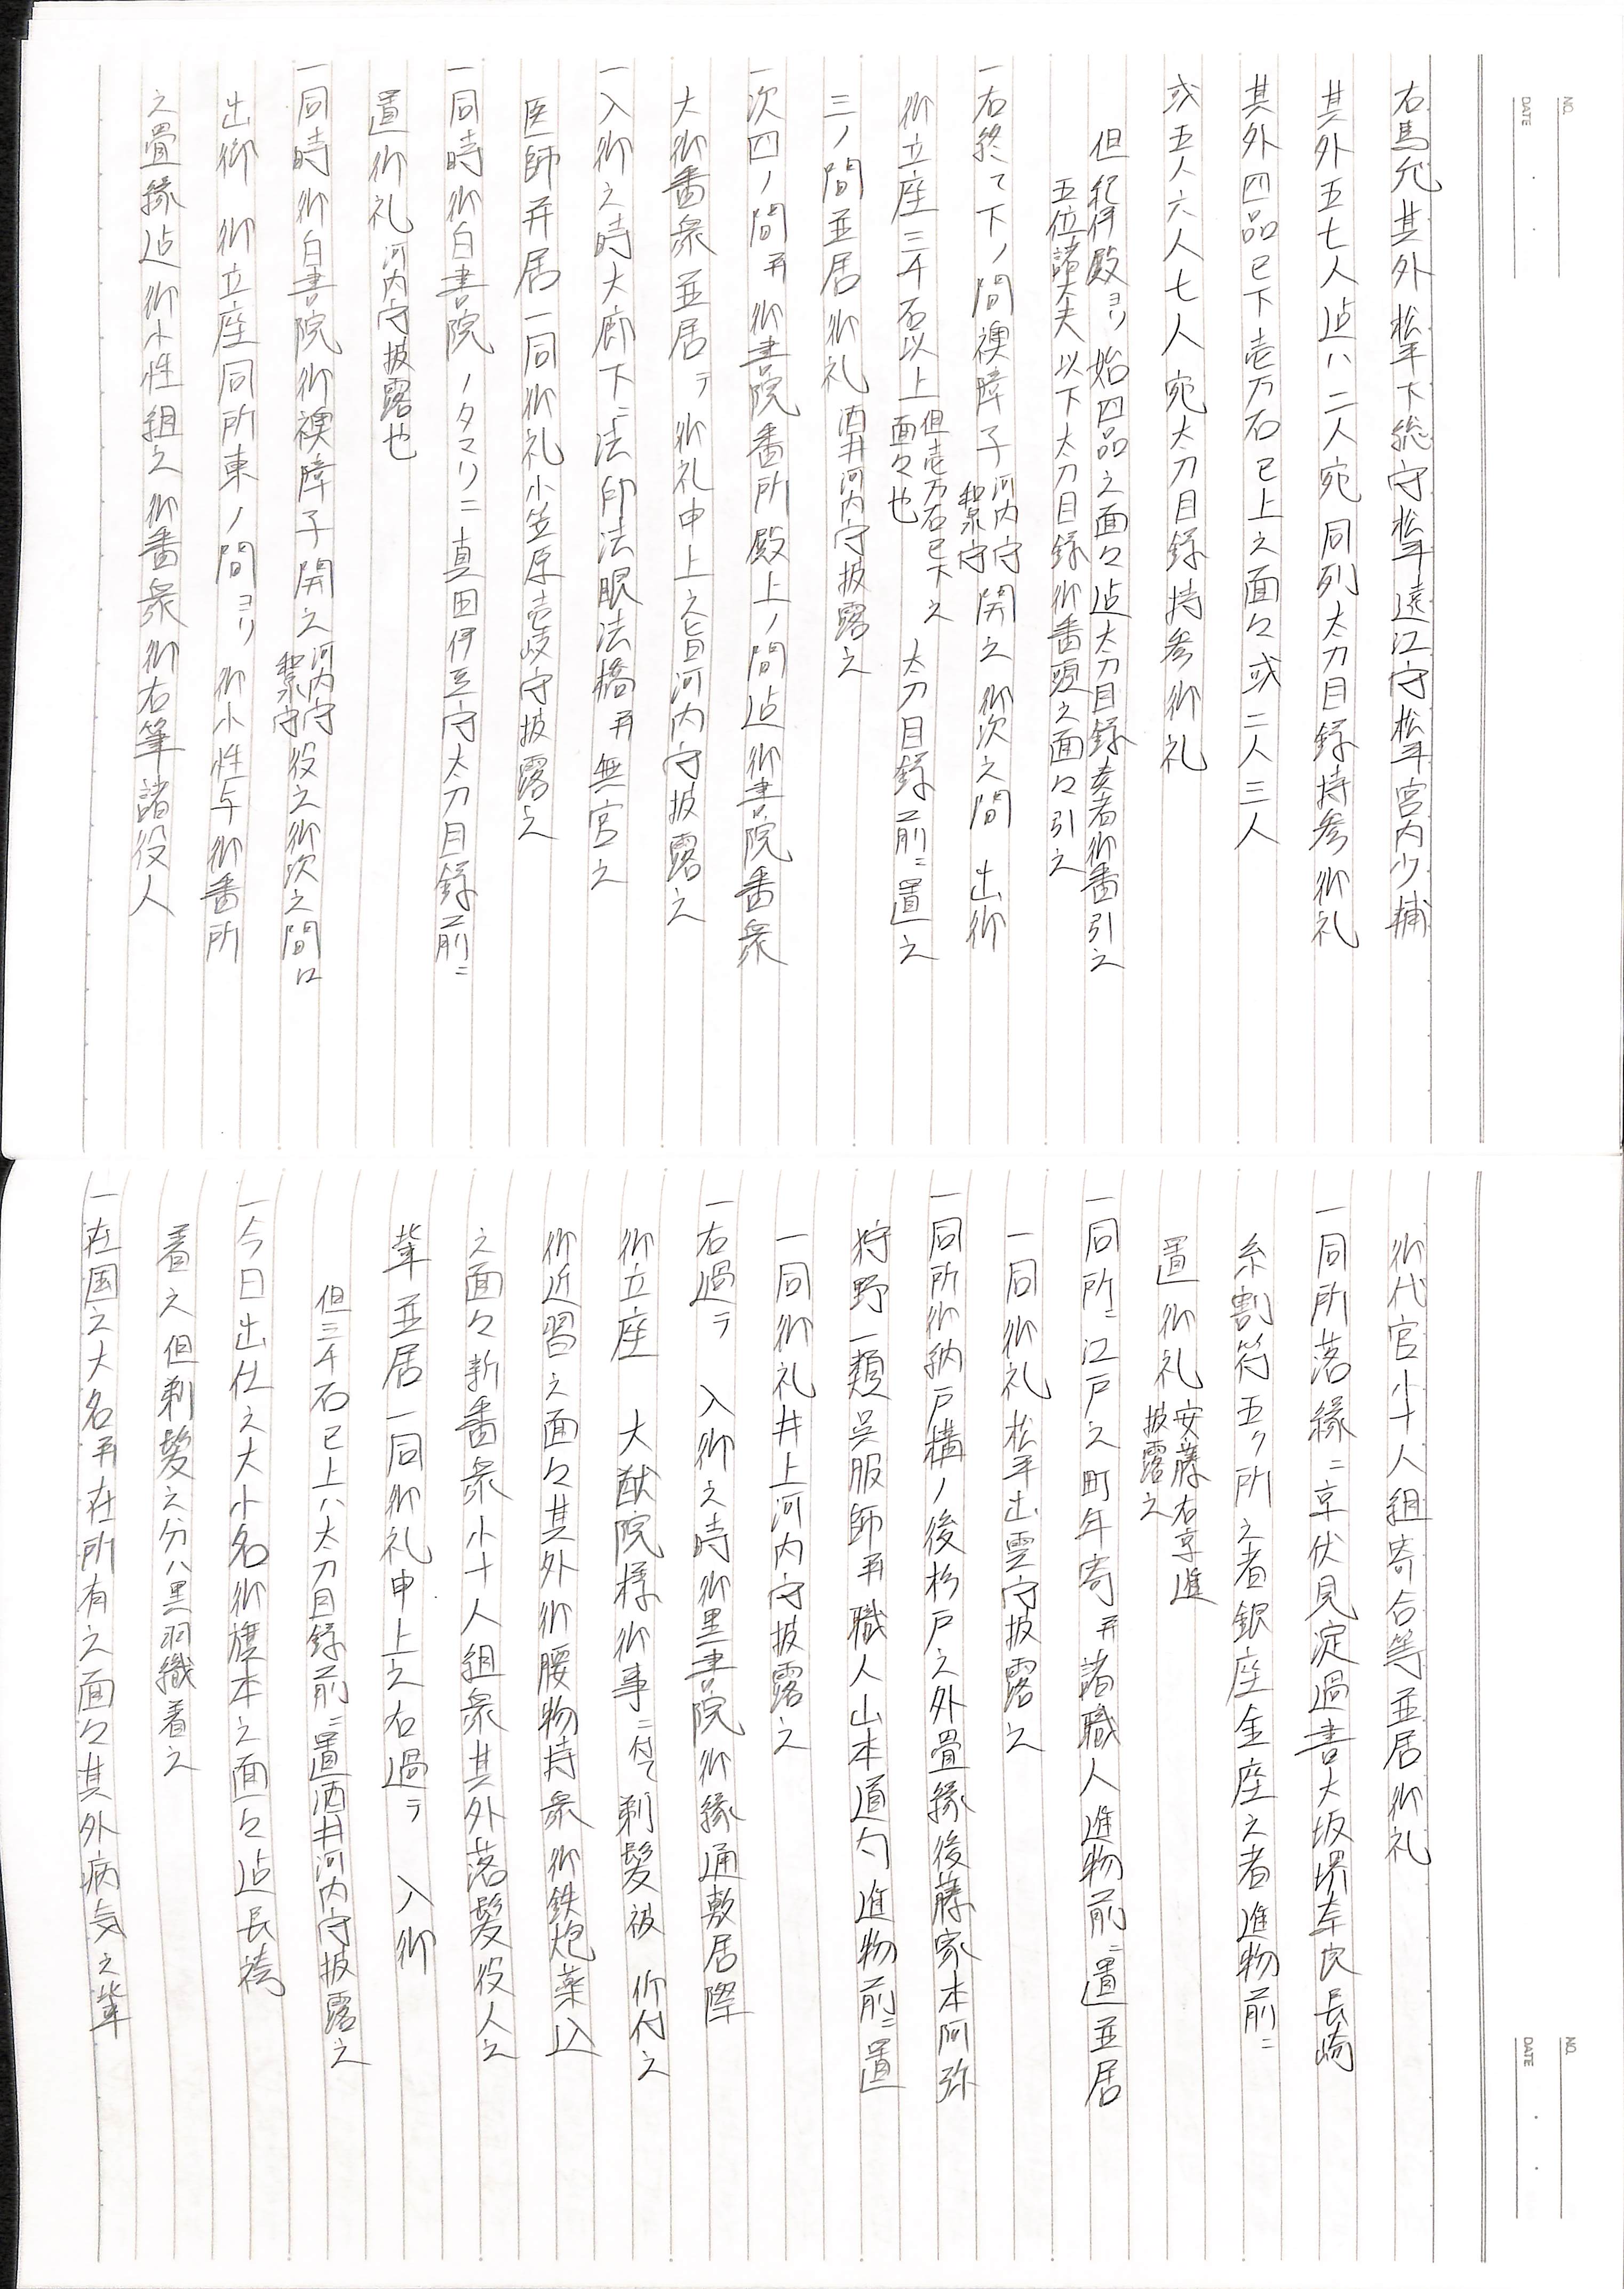 NO.
DATE
右馬允其外松平下総守松平遠江守松平宮内少輔
其外五七人迠ハ二人宛同列太刀目録持参御礼
其外四品已下壱万石已上之面々或二人三人
或五人六人七人宛太刀目録持参御礼
但紀伊殿ヨリ始四品之面々迠太刀目録奏者御番引之
五位諸大夫以下太刀目録御番頭之面々引之
一右終て下ノ間襖障子河内守和泉守開之御次之間 出御
御立座三千石以上但壱万石已下之面々也 太刀目録前ニ置之
三ノ間並居御礼酒井河内守披露之
一次四ノ間并御書院番所殿上ノ間迠御書院番衆
大御番衆並居テ御礼申上之旨河内守披露之
一入御之時大廊下ニ法印法眼法橋并無官之
医師并居一同御礼小笠原壱岐守披露之
一同時御白書院ノタマリニ真田伊豆守太刀目録前ニ
置御礼河内守披露也
一同時御白書院御襖障子開之河内守和泉守役之御次之間江
出御 御立座同所東ノ間ヨリ御小性与御番所
之畳縁迠御小性組之御番衆御右筆諸役人
NO.
DATE
御代官小十人組寄合等並居御礼
一同所落縁ニ京伏見淀過書大坂堺奈良長崎
糸割符五ヶ所之者銀座金座之者進物前ニ
置御礼安藤右京進披露之
一同所ニ江戸之町年寄并諸職人進物前ニ置並居
一同御礼松平出雲守披露之
一同所御納戸構ノ後杉戸之外畳縁後藤家本阿弥
狩野一類呉服師并職人山本道勺進物前ニ置
一同御礼井上河内守披露之
一右過テ 入御之時御黒書院御縁通敷居際
御立座 大猷院様御事ニ付て剃髪被 仰付之
御近習之面々其外御腰物持衆御鉄炮薬込
之面々新番衆小十人組衆其外落髪役人之
輩並居一同御礼申上之右過テ 入御
但三千石已上ハ太刀目録前ニ置酒井河内守披露之
一今日出仕之大小名御旗本之面々迠長袴
着之但剃髪之分ハ黒羽織着之
一在国之大名并在所有之面々其外病気之輩